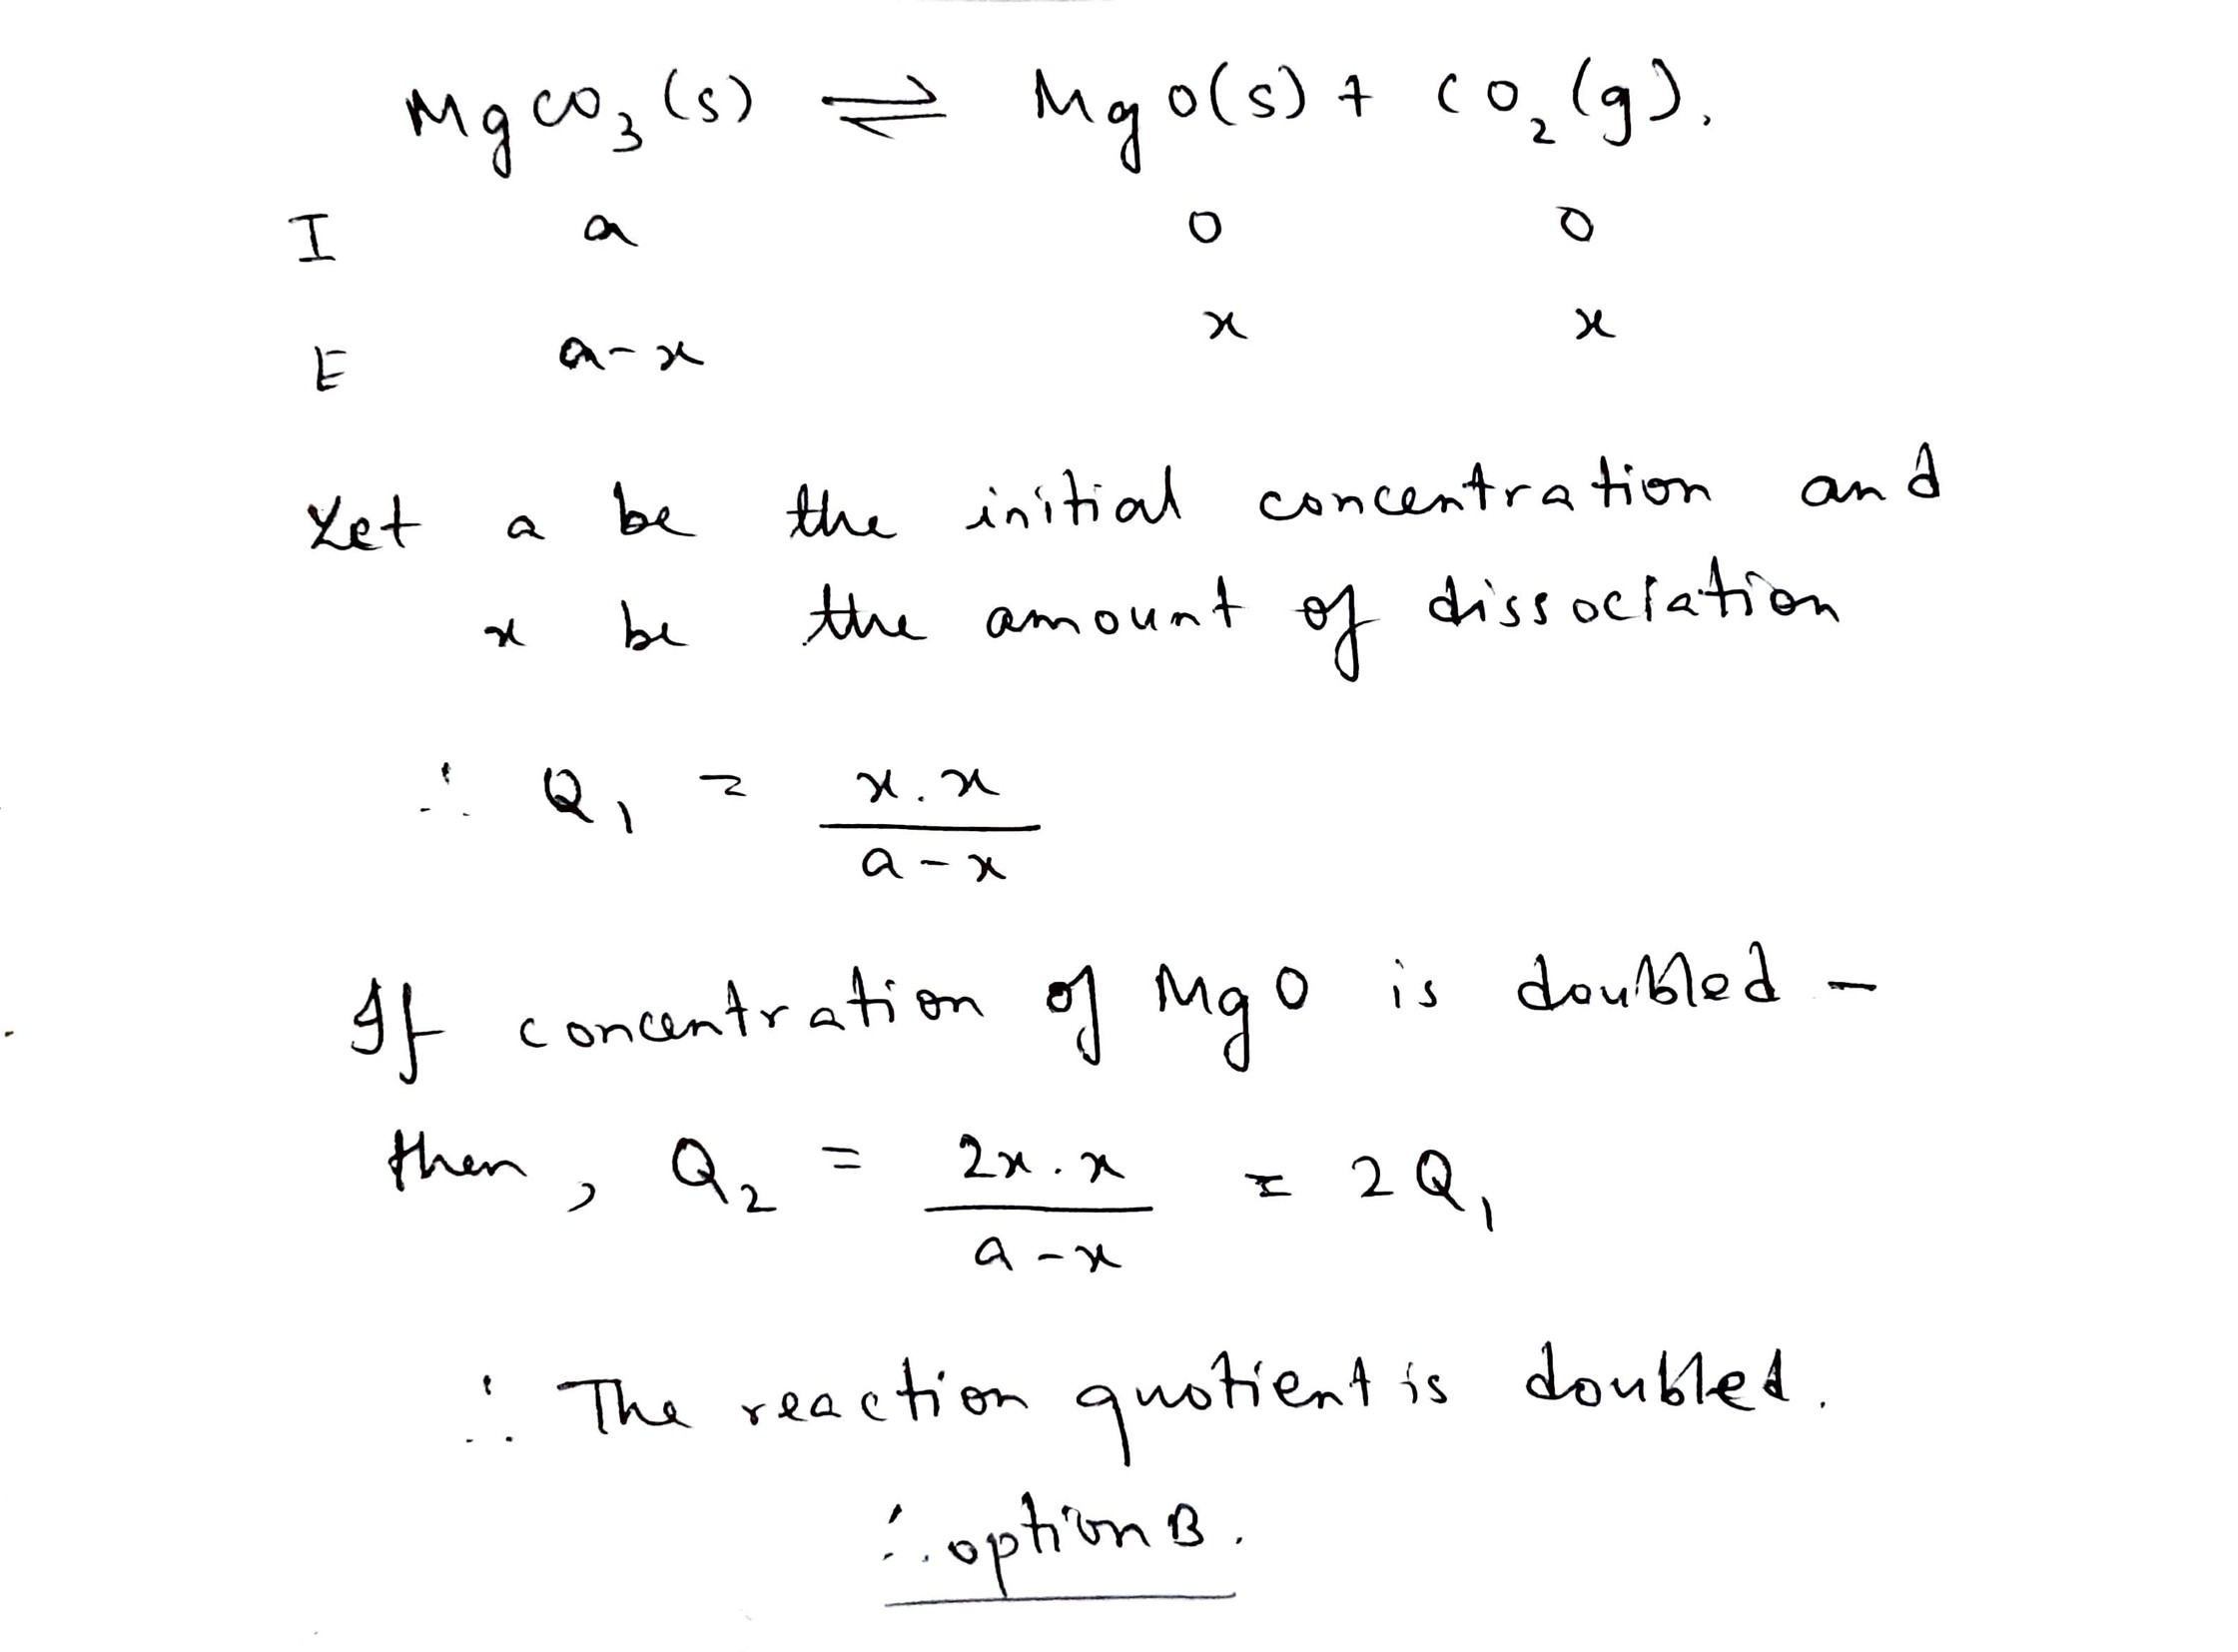 MgCO₃(s) ⇌ MgO(s) + CO₂(g).
I a 0 0
E a-x x x
Let a be the initial concentration and
x be the amount of dissociation
∴ Q₁ = x.x / a-x
If concentration of MgO is doubled -
then, Q₂ = 2x.x / a-x = 2Q₁
∴ The reaction quotient is doubled.
∴ option B.